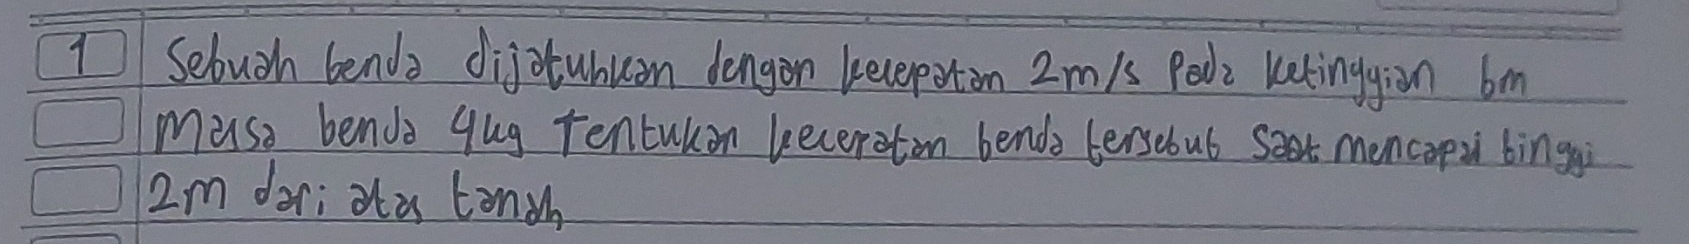 1 Sebuah benda dijatuhkan dengan kecepatan 2m/s Pada ketinggian 6m
Massa benda 4kg Tentukan kecepatan benda tersebut saat mencapai tinggi
2m dari atas tanah